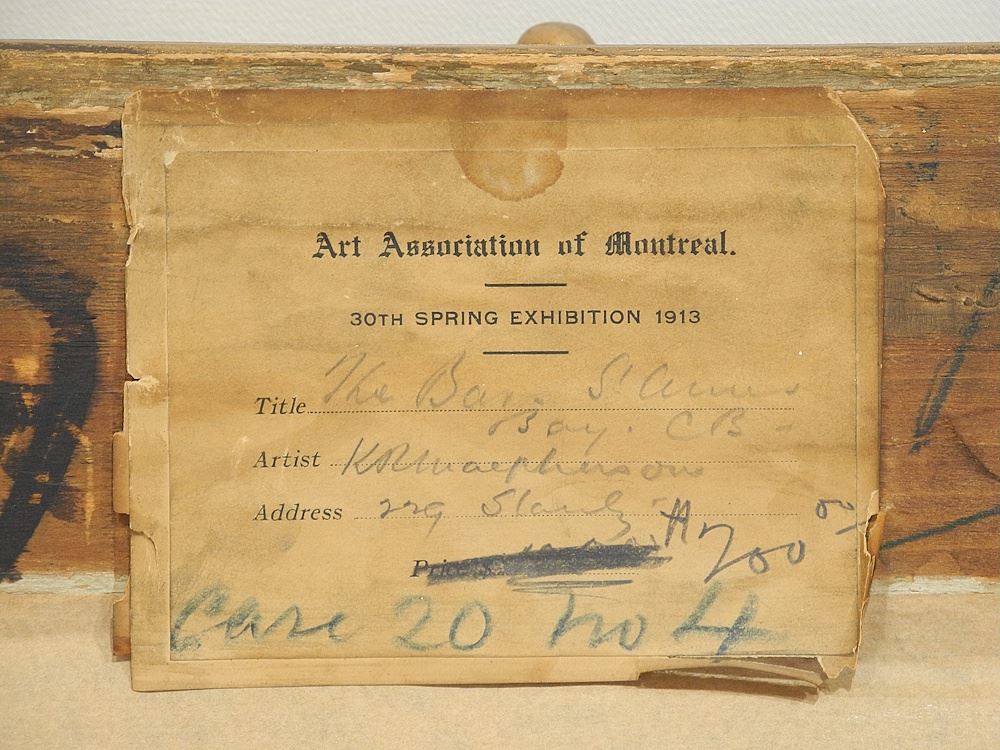 Art Association of Montreal.
30TH SPRING EXHIBITION 1913
Title The Bar. St Anns
Bay. C B -
Artist K R Macpherson
Address 229 Stanley
Price
Case 20 No 4